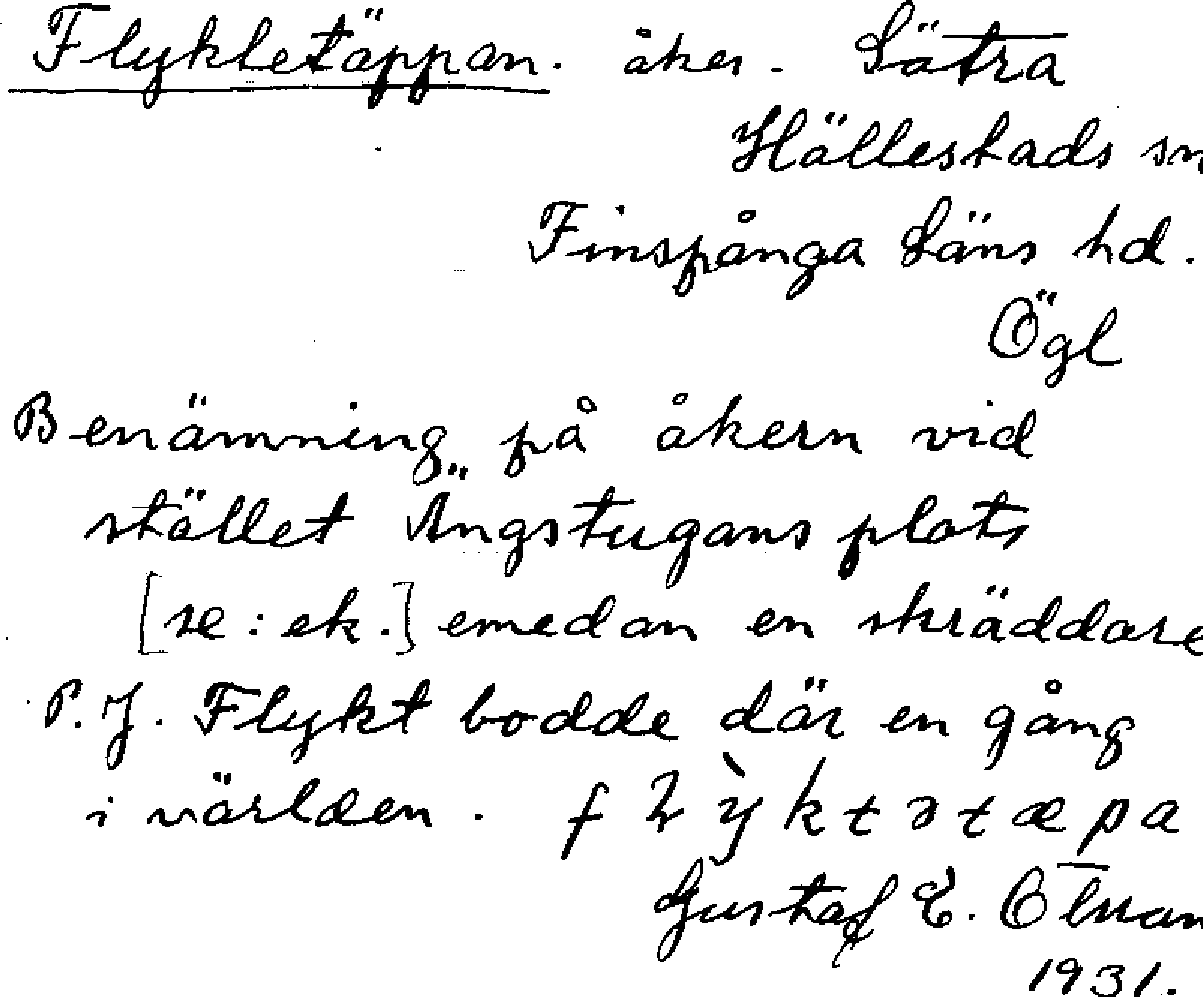 Flykletäppan. åker. Sätra
Hällestads sn
Finspånga Läns hd.
Ögl
Benämning på åkern vid
stället Ängstugans plats
[se: ek.] emedan en skräddare
P. J. Flykt bodde där en gång
i världen. flỳktətæpa
Gustaf E.
1931.